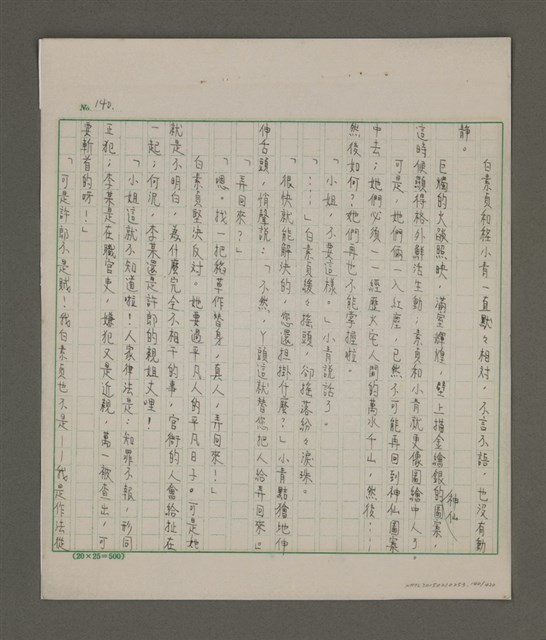 No. 140.
白素貞和桂小青一直默々相対，不言不語，也没有動
靜。
巨燭的火燄照映，滿室輝煌，壁上描金繪銀的神仙圖案，
這時候顯得格外鮮活生動，素貞和小青就更像圖繪中人了。
可是，她們倆一入紅塵，已然不可能再回到神仙圖案
中去；她們必須一一經歷大宅人間的萬水千山，然後⋯⋯
然後如何？她們再也不能掌握啦。
「小姐，不要這樣。」小青說話了。
「⋯⋯」白素貞緩々搖頭，卻搖落紛々淚珠。
「很快就能解決的，您還担掛什麼？」小青黠獪地伸
伸舌頭，悄聲說：「不然，丫頭這就替您把人給弄回來。」
「弄回來？」
「嗯。找一把稻草作替身，真人，弄回來！」
白素貞堅決反对。她要過平凡人的平凡日子。可是她
就是不明白，為什麼完全不相干的事，官衙的人會給扯在
一起；何況，李某還是許郎的親姐丈哩！
「小姐這就不知道啦！人家律法是：知罪不報，形同
正犯；李某是在職官吏，嫌犯又是近親，萬一被查出，可
要斬首的呀！」
「可是許郎不是賊！我白素貞也不是——我是作法從
(20×25=500)